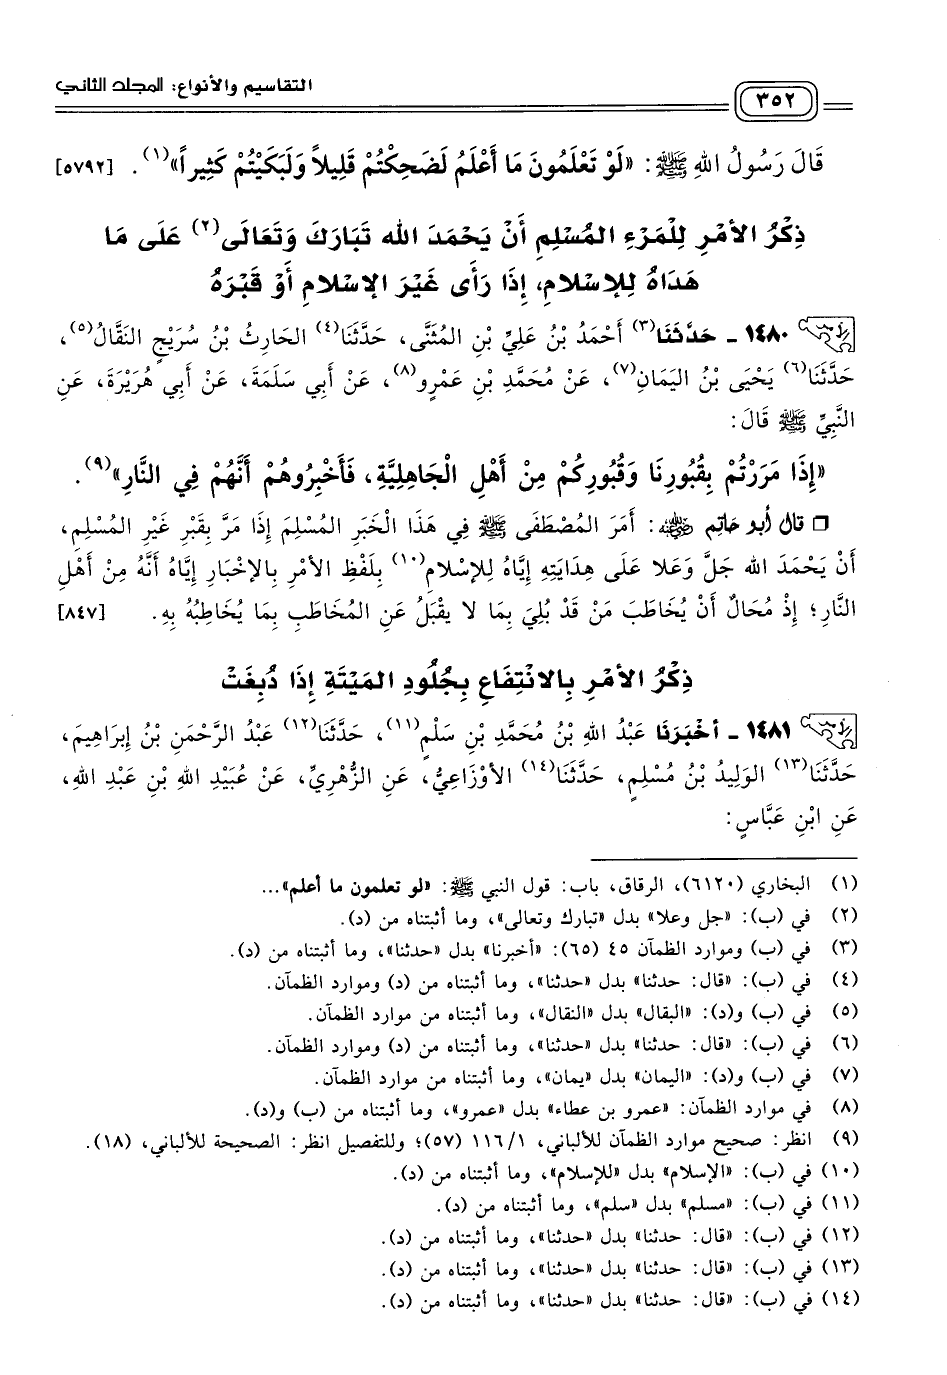 التقاسيم والأنواع: المجلد الثاني
٣٥٢
قَالَ رَسُولُ اللهِ ﷺ: «لَوْ تَعْلَمُونَ مَا أَعْلَمُ لَضَحِكْتُمْ قَلِيلاً وَلَبَكَيْتُمْ كَثِيراً»(١). [٥٧٩٢]
ذِكْرُ الأَمْرِ لِلْمَرْءِ المُسْلِمِ أَنْ يَحْمَدَ الله تَبَارَكَ وَتَعَالَى(٢) عَلَى مَا
هَدَاهُ لِلإِسْلَامِ، إِذَا رَأَى غَيْرَ الإِسْلَامِ أَوْ قَبْرَهُ
١٤٨٠ - حَدَّثَنَا(٣) أَحْمَدُ بْنُ عَلِيِّ بْنِ المُثَنَّى، حَدَّثَنَا(٤) الحَارِثُ بْنُ سُرَيْجٍ النَقَّالُ(٥)،
حَدَّثَنَا(٦) يَحْيَى بْنُ اليَمَانِ(٧)، عَنْ مُحَمَّدِ بْنِ عَمْرٍو(٨)، عَنْ أَبِي سَلَمَةَ، عَنْ أَبِي هُرَيْرَةَ، عَنِ
النَّبِيِّ ﷺ قَالَ:
«إِذَا مَرَرْتُمْ بِقُبُورِنَا وَقُبُورِكُمْ مِنْ أَهْلِ الْجَاهِلِيَّةِ، فَأَخْبِرُوهُمْ أَنَّهُمْ فِي النَّارِ»(٩).
❒ قال أبو حاتم رضي الله عنه: أَمَرَ المُصْطَفَى ﷺ فِي هَذَا الْخَبَرِ المُسْلِمَ إِذَا مَرَّ بِقَبْرِ غَيْرِ المُسْلِمِ،
أَنْ يَحْمَدَ الله جَلَّ وَعَلَا عَلَى هِدَايَتِهِ إِيَّاهُ لِلإِسْلَامِ(١٠) بِلَفْظِ الأَمْرِ بِالإِخْبَارِ إِيَّاهُ أَنَّهُ مِنْ أَهْلِ
النَّارِ؛ إِذْ مُحَالٌ أَنْ يُخَاطَبَ مَنْ قَدْ بُلِيَ بِمَا لَا يَقْبَلُ عَنِ المُخَاطَبِ بِمَا يُخَاطِبُهُ بِهِ. [٨٤٧]
ذِكْرُ الأَمْرِ بِالانْتِفَاعِ بِجُلُودِ المَيْتَةِ إِذَا دُبِغَتْ
١٤٨١ - أخْبَرَنَا عَبْدُ اللهِ بْنُ مُحَمَّدِ بْنِ سَلْمٍ(١١)، حَدَّثَنَا(١٢) عَبْدُ الرَّحْمَنِ بْنُ إِبْرَاهِيمَ،
حَدَّثَنَا(١٣) الوَلِيدُ بْنُ مُسْلِمٍ، حَدَّثَنَا(١٤) الأَوْزَاعِيُّ، عَنِ الزُّهْرِيِّ، عَنْ عُبَيْدِ اللهِ بْنِ عَبْدِ اللهِ،
عَنِ ابْنِ عَبَّاسٍ:
(١) البخاري (٦١٢٠)، الرقاق، باب: قول النبي ﷺ: «لو تعلمون ما أعلم»...
(٢) في (ب): «جل وعلا» بدل «تبارك وتعالى»، وما أثبتناه من (د).
(٣) في (ب) وموارد الظمآن ٤٥ (٦٥): «أخبرنا» بدل «حدثنا»، وما أثبتناه من (د).
(٤) في (ب): «قال: حدثنا» بدل «حدثنا»، وما أثبتناه من (د) وموارد الظمآن.
(٥) في (ب) و(د): «البقال» بدل «النقال»، وما أثبتناه من موارد الظمآن.
(٦) في (ب): «قال: حدثنا» بدل «حدثنا»، وما أثبتناه من (د) وموارد الظمآن.
(٧) في (ب) و(د): «اليمان» بدل «يمان»، وما أثبتناه من موارد الظمآن.
(٨) في موارد الظمآن: «عمرو بن عطاء» بدل «عمرو»، وما أثبتناه من (ب) و(د).
(٩) انظر: صحيح موارد الظمآن للألباني، ١/ ١١٦ (٥٧)؛ وللتفصيل انظر: الصحيحة للألباني، (١٨).
(١٠) في (ب): «الإسلام» بدل «للإسلام»، وما أثبتناه من (د).
(١١) في (ب): «مسلم» بدل «سلم»، وما أثبتناه من (د).
(١٢) في (ب): «قال: حدثنا» بدل «حدثنا»، وما أثبتناه من (د).
(١٣) في (ب): «قال: حدثنا» بدل «حدثنا»، وما أثبتناه من (د).
(١٤) في (ب): «قال: حدثنا» بدل «حدثنا»، وما أثبتناه من (د).